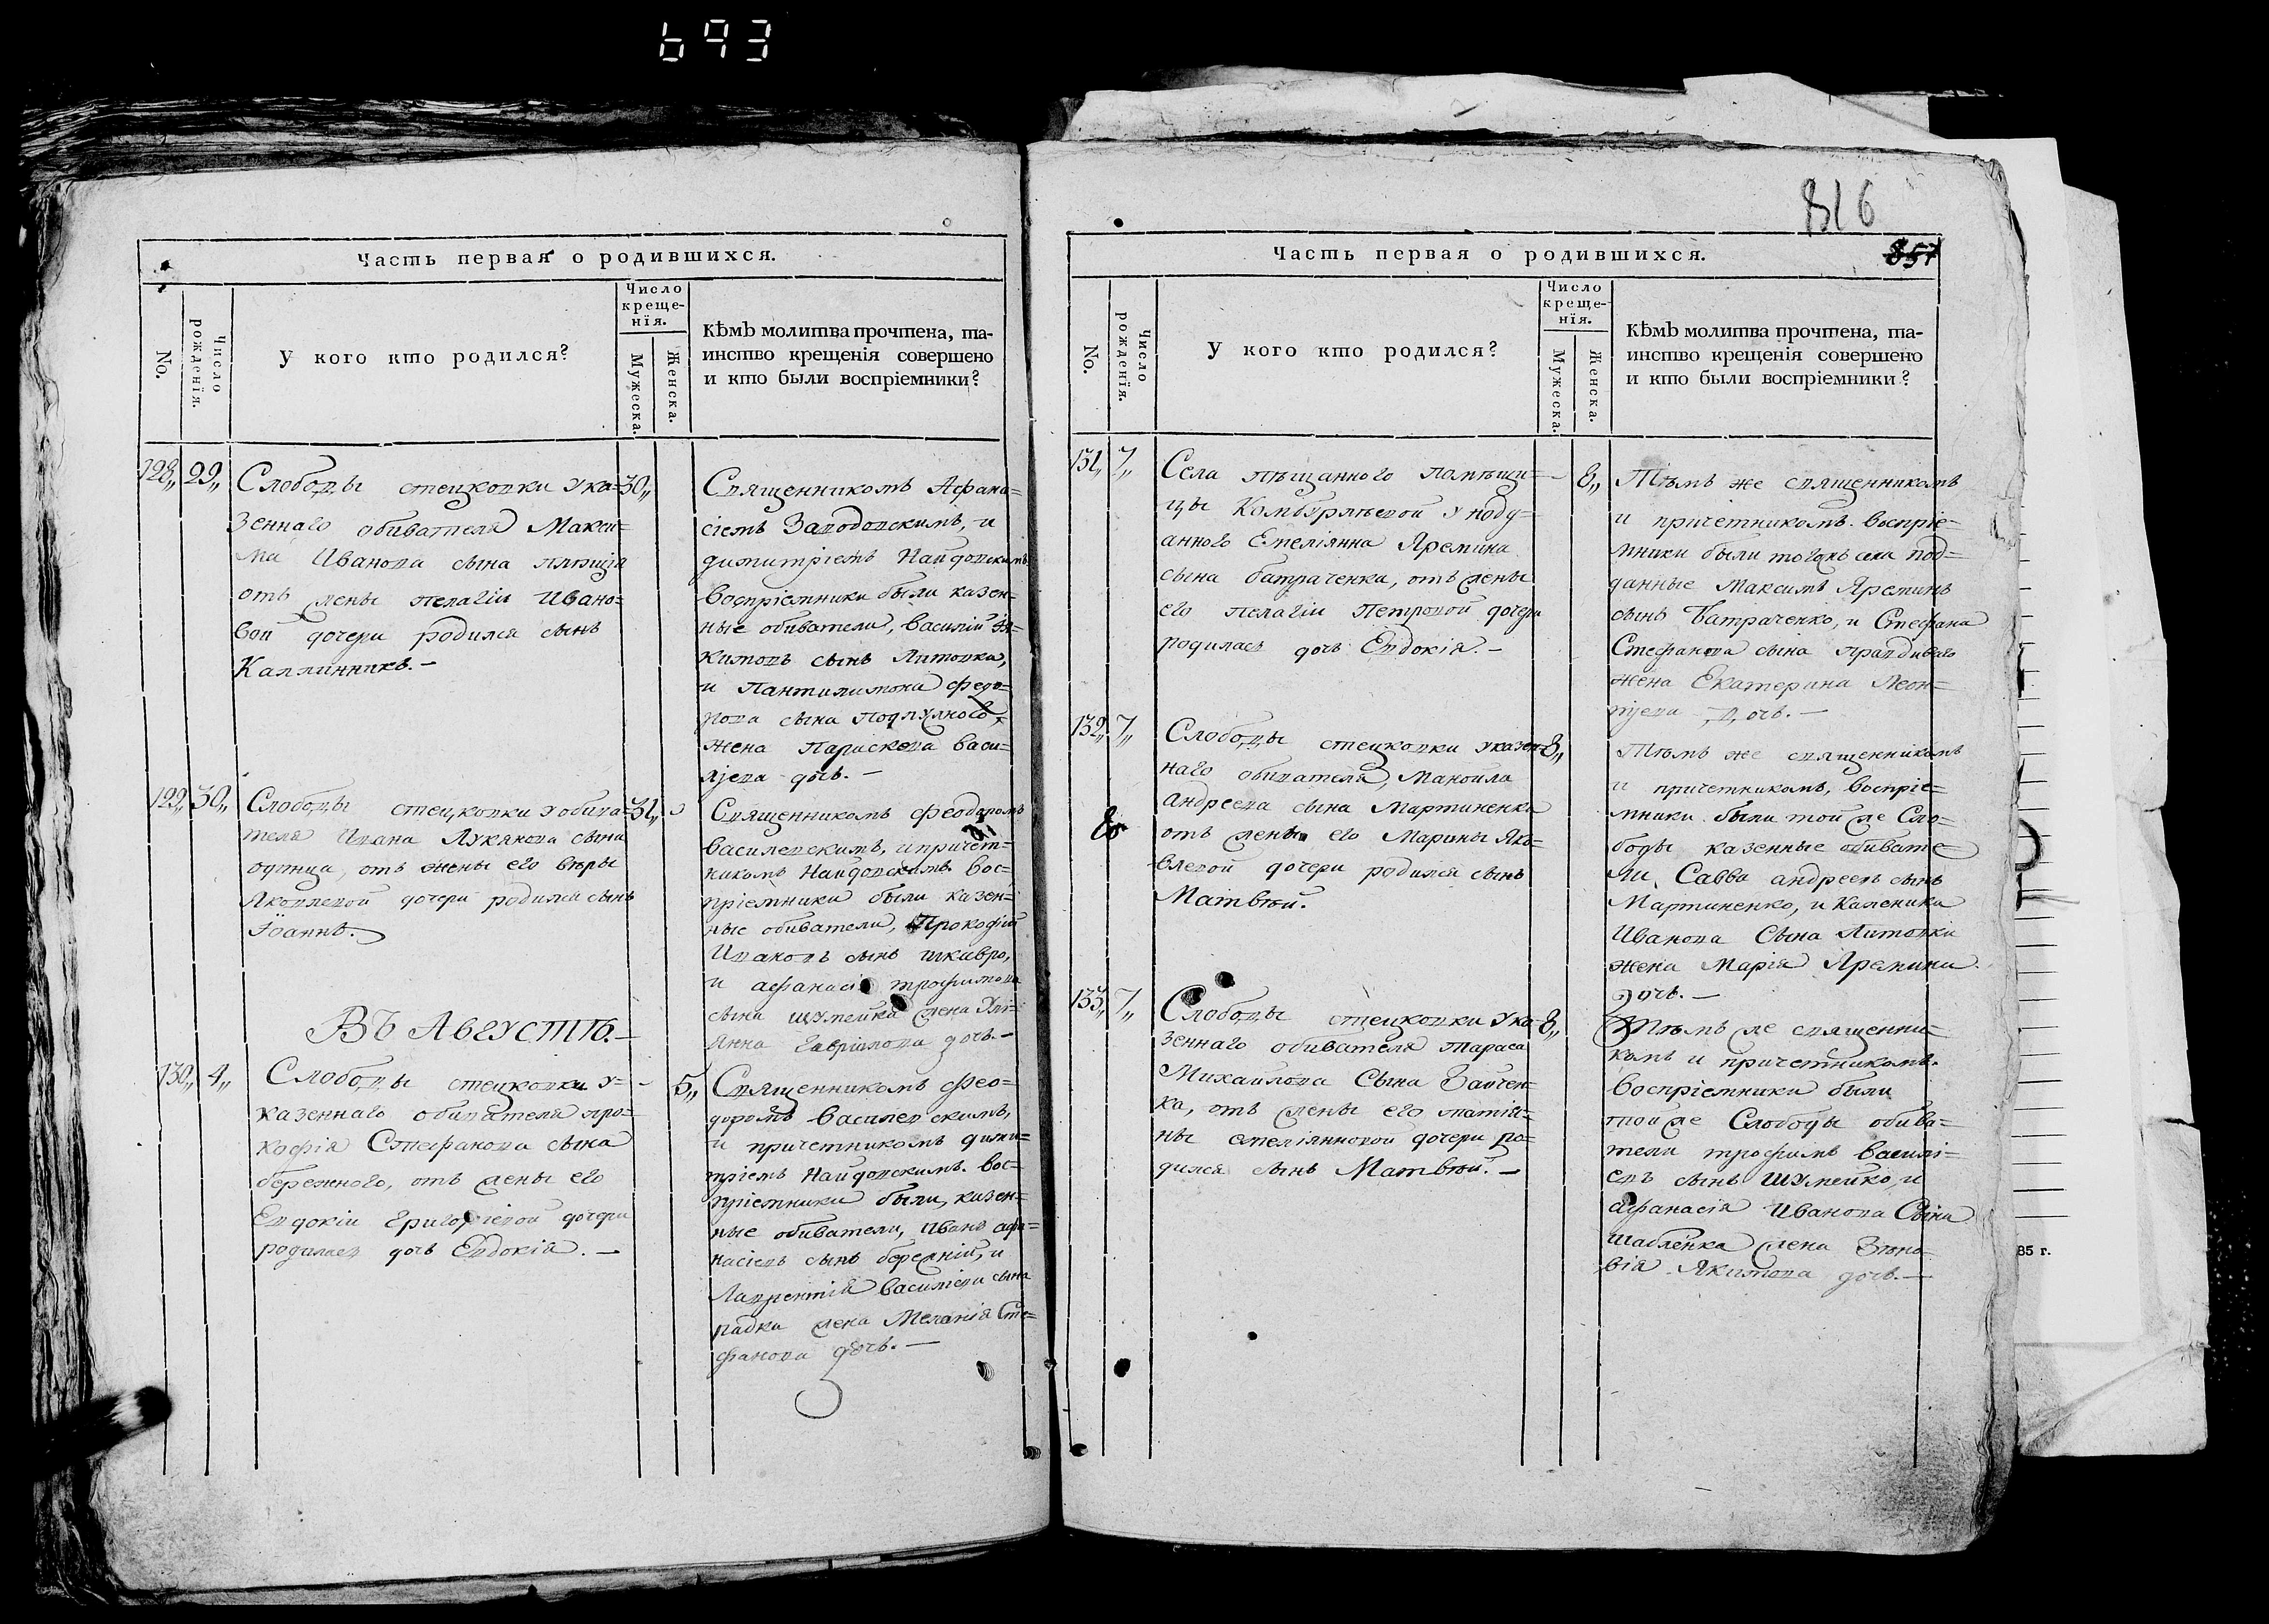 693
Часть первая о родившихся.
No.
Число рожденїя.
У кого кто родился?
Число
креще-
нїя.
Мужеска.
Женска.
Кѣмъ молитва прочтена, та-
инство крещенія совершено
и кто были воспріемники?
128„ 29„
Слободы стецковки у ка-
зеннаго обивателя Макси-
ма Иванова сына
отъ жены пелагіи Ивано-
вои дочери родился сынъ
Каллинникъ.-
30„
Священникомъ Афана-
сіемъ Заводовскимъ, и
димитріемъ Найдовскимъ
воспріемники были казен-
ные обиватели, василій Я-
кимовъ сынъ Литовка,
и Пантилимона федо-
рова сына
жена Параскева васи-
лјева дочь.-
129„ 30„
Слободы стецковки у обива-
теля Ивана Лукянова сына
одтица, отъ жены его вѣры
Яковлевой дочери родился сынъ
Іоаннъ.
31„
Священникомъ феодоромъ
василевскимъ, и причет-
никомъ Найдовскимъ вос-
пріемники были казен-
ные обиватели, Прокофій
Иваковъ сынъ шкавро,
и афанасія трофимова
сына шумейка жена Улі-
янна гавріилова дочь.-
Въ Августѣ.-
130„ 4„
Слободы стецковки у-
казеннаго обивателя про-
кофія Стефанова сына
бережного, отъ жены его
Евдокіи григоріевой дочери
родилась дочь Евдокія.-
5„
Священникомъ фео-
доромъ василевскимъ,
и причетникомъ дими-
тріемъ Найдовскимъ. вос-
пріемники были, казен-
ные обиватели, иванъ афа-
насіевъ сынъ бережній, и
Лаврентія василіева сына
радка жена Меланія Сте-
фанова дочь.-
816
857
Часть первая о родившихся.
No.
Число рожденїя.
У кого кто родился?
Число
креще-
нїя.
Мужеска.
Женска.
Кѣмъ молитва прочтена, та-
инство крещенія совершено
и кто были воспріемники?
131„ 7„
Села пѣщанного помѣщи-
цы Комбурлѣевой у подд-
анного Емеліянна Яремина
сына батраченка, отъ жены
его пелагіи Петровой дочери
родилась дочь Евдокія.-
8„
Тѣмъ же священникомъ
и причетникомъ. воспріе-
мники были тогожъ села под-
данные Максимъ Яреминъ
сынъ Батраченко, и Стефана
Стефанова сына правдиваго
жена Екатерина Леон-
тјева дочь.-
132„ 7„
Слободы стецковки у казен-
наго обивателя, Манойла
андреева сына Мартиненка
отъ жены его Марины Яко-
влевой дочери родился сынъ
Матвѣй.
8„
Тѣмъ же священникомъ
и причетникомъ, воспріе-
мники были той же Сло-
боды казенные обивате-
ли, Савва андреевъ сынъ
Мартиненко, и Каленика
Иванова Сына Литовки
жена Марія Яремина
дочь.-
133„ 7„
Слободы стецковки у ка-
зеннаго обивателя тараса
Михайлова Сына Зайчен-
ка, отъ жены его татія-
ны емеліянновой дочери ро-
дился сынъ Матвѣй.-
8„
Тѣмъ же священни-
комъ и причетникомъ.
воспріемники были
той же Слободы обива-
тели трофимъ василі-
евъ сынъ шумейко, и
афанасія Иванова Сына
шабленка жена Зѣно-
вія Якимова дочь.-
85 г.